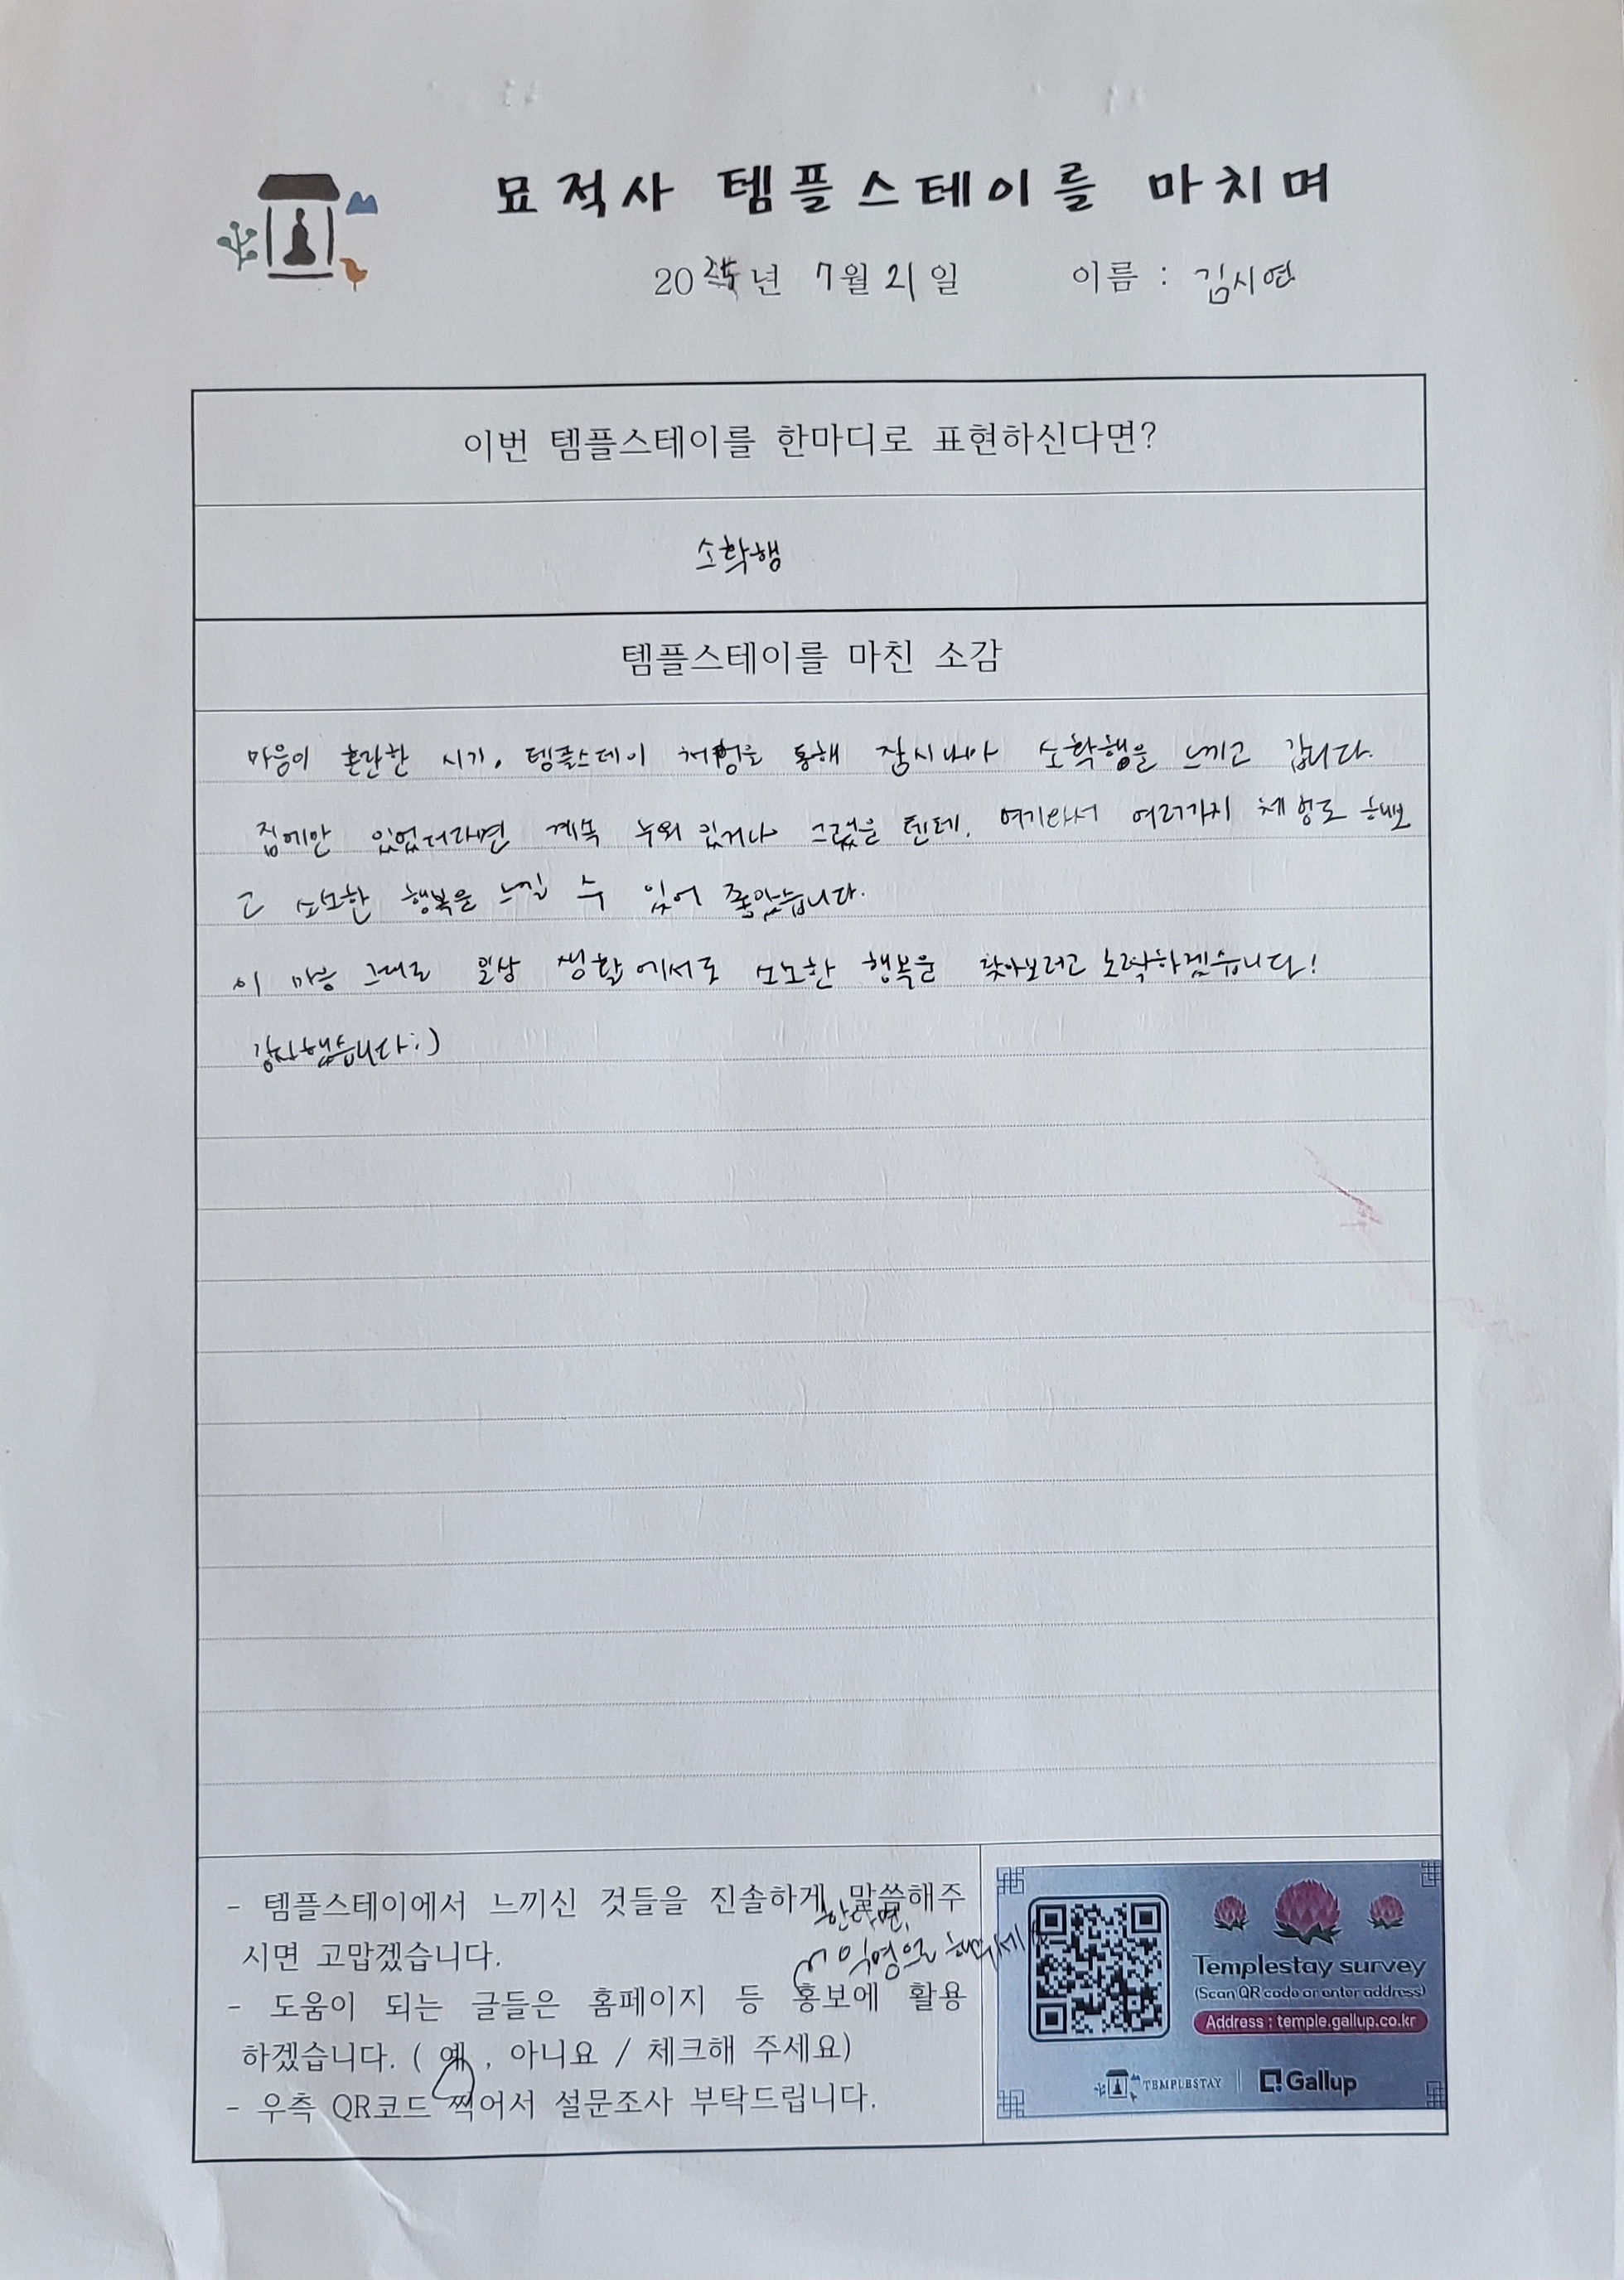 묘적사 템플스테이를 마치며
20 년 7월 21일 이름 : 김시연
이번 템플스테이를 한마디로 표현하신다면?
소확행
템플스테이를 마친 소감
마음이 혼란한 시기, 템플스테이 체험을 통해 잠시나마 소확행을 느끼고 갑니다.
집에만 있었더라면 계속 누워 있거나 그랬을 텐데, 여기와서 여러가지 체험도 해보
고 소소한 행복을 느낄 수 있어 좋았습니다.
이 마음 그대로 일상 생활에서도 소소한 행복을 찾아보려고 노력하겠습니다!
감사했습니다:)
- 템플스테이에서 느끼신 것들을 진솔하게 말씀해주
한다면,
시면 고맙겠습니다.
익명으로 해주세요
- 도움이 되는 글들은 홈페이지 등 홍보에 활용
하겠습니다. ( 예 , 아니요 / 체크해 주세요)
- 우측 QR코드 찍어서 설문조사 부탁드립니다.
Templestay survey
(Scan QR code or enter address)
Address : temple.gallup.co.kr
TEMPLESTAY Gallup